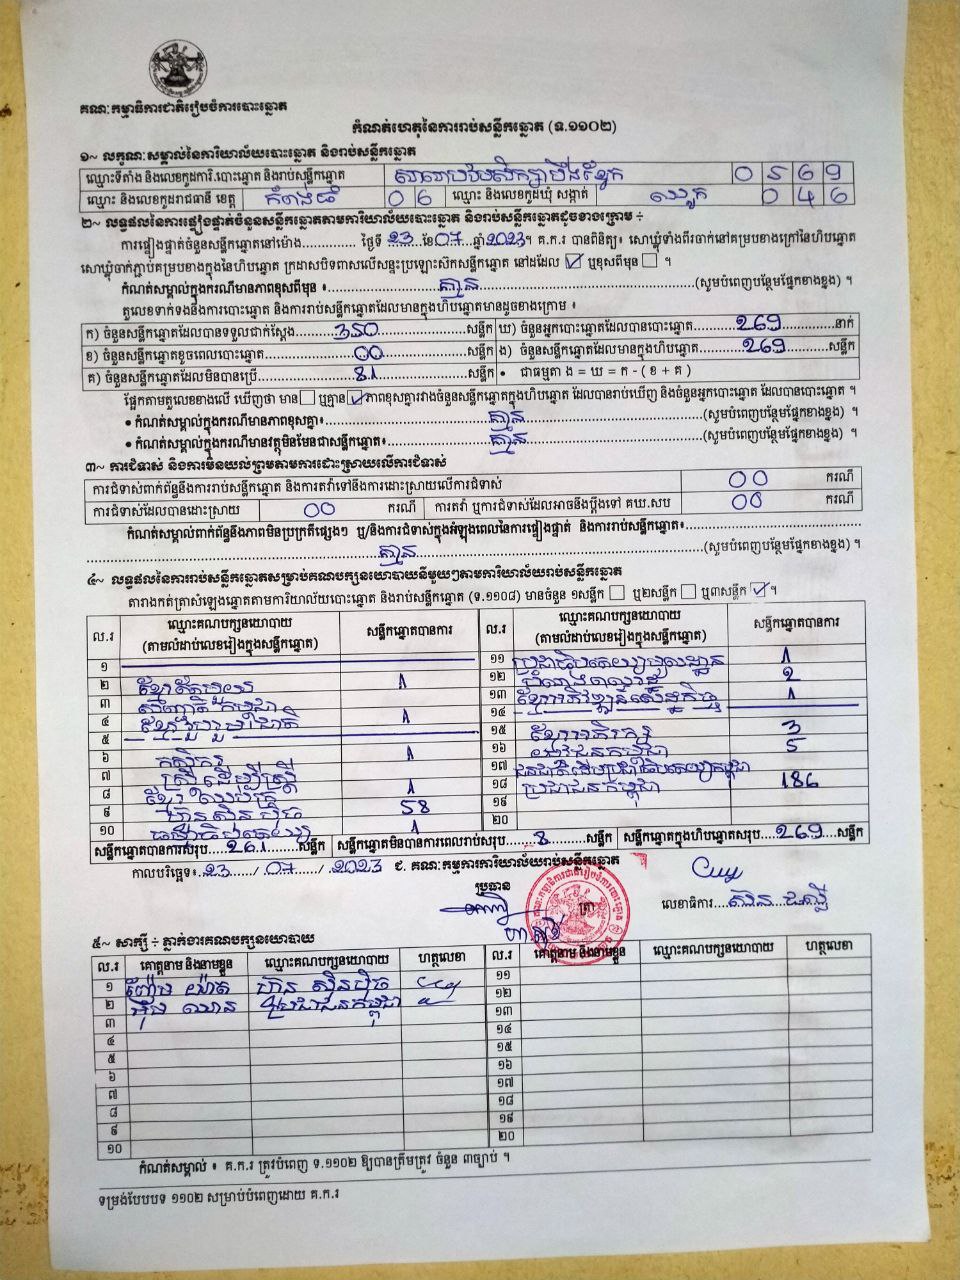 គណៈកម្មាធិការជាតិរៀបចំការបោះឆ្នោត
កំណត់ហេតុនៃការរាប់សន្លឹកឆ្នោត (ទ.១១០២)
១~ លក្ខណៈសម្គាល់នៃការិយាល័យបោះឆ្នោត និងរាប់សន្លឹកឆ្នោត
ឈ្មោះទីតាំង និងលេខកូដការិ.បោះឆ្នោត និងរាប់សន្លឹកឆ្នោត 0 5 6 9
ឈ្មោះ និងលេខកូដរាជធានី ខេត្ត កំពង់ធំ 0 6 ឈ្មោះ និងលេខកូដឃុំ សង្កាត់ ឈូក 0 4 6
២~ លទ្ធផលនៃការផ្ទៀងផ្ទាត់ចំនួនសន្លឹកឆ្នោតតាមការិយាល័យបោះឆ្នោត និងរាប់សន្លឹកឆ្នោតដូចខាងក្រោម ÷
ការផ្ទៀងផ្ទាត់ចំនួនសន្លឹកឆ្នោតនៅម៉ោង.............. ថ្ងៃទី 23 ខែ 07 ឆ្នាំ 2023 ។ គ.ក.រ បានពិនិត្យ៖ សោឃ្លុំទាំងពីរចាក់នៅគម្របខាងក្រៅនៃហិបឆ្នោត
សោឃ្លុំចាក់ភ្ជាប់គម្របខាងក្នុងនៃហិបឆ្នោត ក្រដាសបិទពាសលើសន្ទះប្រឡោះស៊កសន្លឹកឆ្នោត នៅដដែល ☑ ឬខុសពីមុន ☐ ។
កំណត់សម្គាល់ក្នុងករណីមានភាពខុសពីមុន ៖ គ្មាន (សូមបំពេញបន្ថែមផ្នែកខាងខ្នង) ។
តួលេខទាក់ទងនឹងការបោះឆ្នោត និងការរាប់សន្លឹកឆ្នោតដែលមានក្នុងហិបឆ្នោតមានដូចខាងក្រោម ៖
ក) ចំនួនសន្លឹកឆ្នោតដែលបានទទួលជាក់ស្តែង 350 សន្លឹក ឃ) ចំនួនអ្នកបោះឆ្នោតដែលបានបោះឆ្នោត 269 នាក់
ខ) ចំនួនសន្លឹកឆ្នោតខូចពេលបោះឆ្នោត 00 សន្លឹក ង) ចំនួនសន្លឹកឆ្នោតដែលមានក្នុងហិបឆ្នោត 269 សន្លឹក
គ) ចំនួនសន្លឹកឆ្នោតដែលមិនបានប្រើ 81 សន្លឹក • ជាធម្មតា ង = ឃ = ក - ( ខ + គ )
ផ្អែកតាមតួលេខខាងលើ ឃើញថា មាន ☐ ឬគ្មាន ☑ ភាពខុសគ្នារវាងចំនួនសន្លឹកឆ្នោតក្នុងហិបឆ្នោត ដែលបានរាប់ឃើញ និងចំនួនអ្នកបោះឆ្នោត ដែលបានបោះឆ្នោត ។
• កំណត់សម្គាល់ក្នុងករណីមានភាពខុសគ្នា៖ គ្មាន (សូមបំពេញបន្ថែមផ្នែកខាងខ្នង) ។
• កំណត់សម្គាល់ក្នុងករណីមានវត្ថុមិនមែនជាសន្លឹកឆ្នោត៖ គ្មាន (សូមបំពេញបន្ថែមផ្នែកខាងខ្នង) ។
៣~ ការជំទាស់ និងការមិនយល់ព្រមតាមការដោះស្រាយលើការជំទាស់
ការជំទាស់ពាក់ព័ន្ធនឹងការរាប់សន្លឹកឆ្នោត និងការតវ៉ាទៅនឹងការដោះស្រាយលើការជំទាស់ 00 ករណី
ការជំទាស់ដែលបានដោះស្រាយ 00 ករណី ការតវ៉ា ឬការជំទាស់ដែលអាចនឹងប្តឹងទៅ គឃ.សប 00 ករណី
កំណត់សម្គាល់ពាក់ព័ន្ធនឹងភាពមិនប្រក្រតីផ្សេងៗ ឬ/និងការជំទាស់ក្នុងអំឡុងពេលនៃការផ្ទៀងផ្ទាត់ និងការរាប់សន្លឹកឆ្នោត៖
គ្មាន (សូមបំពេញបន្ថែមផ្នែកខាងខ្នង) ។
៤~ លទ្ធផលនៃការរាប់សន្លឹកឆ្នោតសម្រាប់គណបក្សនយោបាយនីមួយៗតាមការិយាល័យរាប់សន្លឹកឆ្នោត
តារាងកត់ត្រាសំឡេងឆ្នោតតាមការិយាល័យបោះឆ្នោត និងរាប់សន្លឹកឆ្នោត (ទ.១១០៨) មានចំនួន ១សន្លឹក ☐ ឬ២សន្លឹក ☐ ឬ៣សន្លឹក ☑ ។
ល.រ ឈ្មោះគណបក្សនយោបាយ (តាមលំដាប់លេខរៀងក្នុងសន្លឹកឆ្នោត) សន្លឹកឆ្នោតបានការ ល.រ ឈ្មោះគណបក្សនយោបាយ (តាមលំដាប់លេខរៀងក្នុងសន្លឹកឆ្នោត) សន្លឹកឆ្នោតបានការ
១ ១១ ប្រជាធិបតេយ្យមូលដ្ឋាន 1
២ ខ្មែរតែមួយ 1 ១២ 2
៣ សញ្ជាតិកម្ពុជា ១៣ ខ្មែរអភិវឌ្ឍន៍សេដ្ឋកិច្ច 1
៤ ខ្មែររួបរួមជាតិ 1 ១៤
៥ ១៥ ខ្មែរអភិរក្ស 3
៦ កសិករ 1 ១៦ យុវជនកម្ពុជា 5
៧ ស្ត្រីដើម្បីស្ត្រី ១៧ ជនជាតិដើមប្រជាធិបតេយ្យកម្ពុជា
៨ ខ្មែរឈប់ក្រ 1 ១៨ ប្រជាជនកម្ពុជា 186
៩ ហ៊្វុនស៊ិនប៉ិច 58 ១៩
១០ ធម្មាធិបតេយ្យ 1 ២០
សន្លឹកឆ្នោតបានការសរុប 261 សន្លឹក សន្លឹកឆ្នោតមិនបានការពេលរាប់សរុប 8 សន្លឹក សន្លឹកឆ្នោតក្នុងហិបឆ្នោតសរុប 269 សន្លឹក
កាលបរិច្ឆេទ៖ 23 / 07 / 2023 ជ. គណៈកម្មការការិយាល័យរាប់សន្លឹកឆ្នោត
ប្រធាន ត្រា លេខាធិការ
៥~ សាក្សី ÷ ភ្នាក់ងារគណបក្សនយោបាយ
ល.រ គោត្តនាម និងនាមខ្លួន ឈ្មោះគណបក្សនយោបាយ ហត្ថលេខា ល.រ គោត្តនាម និងនាមខ្លួន ឈ្មោះគណបក្សនយោបាយ ហត្ថលេខា
១ ហ៊្វុនស៊ិនប៉ិច ១១
២ ប្រជាជនកម្ពុជា ១២
៣ ១៣
៤ ១៤
៥ ១៥
៦ ១៦
៧ ១៧
៨ ១៨
៩ ១៩
១០ ២០
កំណត់សម្គាល់ ៖ គ.ក.រ ត្រូវបំពេញ ទ.១១០២ ឱ្យបានត្រឹមត្រូវ ចំនួន ៣ច្បាប់ ។
ទម្រង់បែបបទ ១១០២ សម្រាប់បំពេញដោយ គ.ក.រ